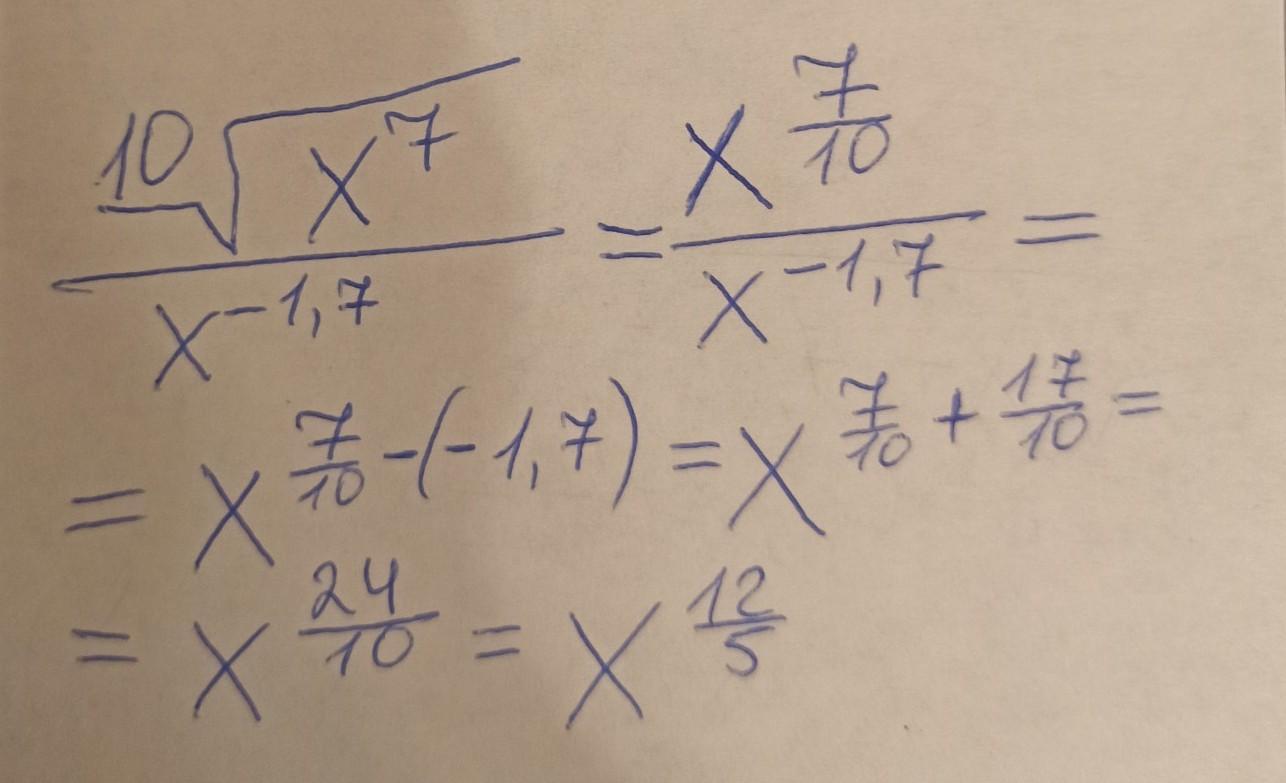 \frac{\sqrt[10]{x^7}}{x^{-1,7}} = \frac{x^{\frac{7}{10}}}{x^{-1,7}} =
= x^{\frac{7}{10}-(-1,7)} = x^{\frac{7}{10}+\frac{17}{10}} =
= x^{\frac{24}{10}} = x^{\frac{12}{5}}